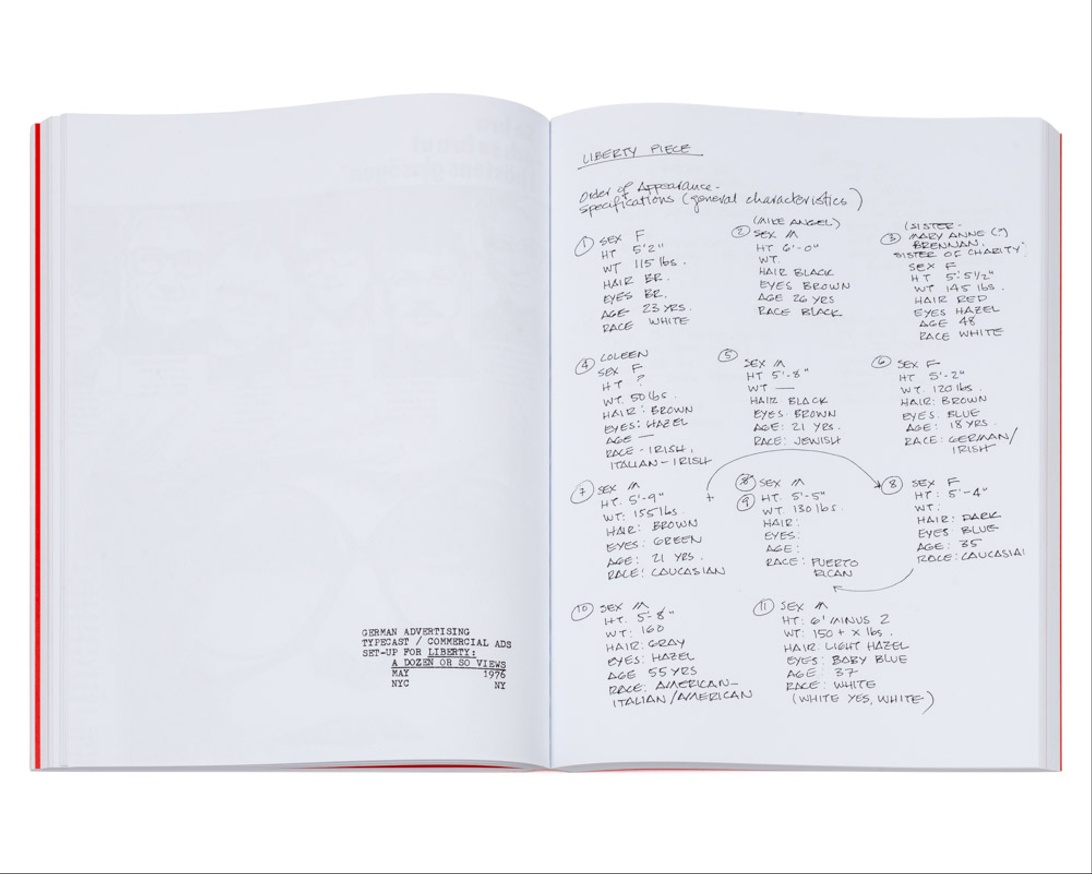 GERMAN ADVERTISING
TYPECAST / COMMERCIAL ADS
SET-UP FOR LIBERTY:
A DOZEN OR SO VIEWS
MAY 1976
NYC NY
LIBERTY PIECE
Order of Appearance -
specifications (general characteristics)
1 SEX F
HT 5'2"
WT 115 lbs.
HAIR BR.
EYES BR.
AGE 23 YRS.
RACE WHITE
(MIKE ANGEL)
2 SEX M
HT 6'-0"
WT.
HAIR BLACK
EYES BROWN
AGE 26 YRS
RACE BLACK
(SISTER -
3 MARY ANNE (?)
BRENNAN,
SISTER OF CHARITY)
SEX F
HT 5'-5 1/2"
WT 145 lbs.
HAIR RED
EYES HAZEL
AGE 48
RACE WHITE
4 COLEEN
SEX F
HT ?
WT. 50 lbs.
HAIR: BROWN
EYES: HAZEL
AGE —
RACE - IRISH,
ITALIAN - IRISH
5 SEX M
HT 5'-8"
WT —
HAIR BLACK
EYES: BROWN
AGE: 21 YRS.
RACE: JEWISH
6 SEX F
HT 5'-2"
WT. 120 lbs.
HAIR: BROWN
EYES: BLUE
AGE: 18 YRS.
RACE: GERMAN/
IRISH
7 SEX M
HT. 5'-9"
WT: 155 lbs.
HAIR: BROWN
EYES: GREEN
AGE: 21 YRS.
RACE: CAUCASIAN
8 SEX M
9 HT. 5'-5"
WT. 130 lbs.
HAIR:
EYES:
AGE:
RACE: PUERTO
RICAN
8 SEX F
HT: 5'-4"
WT:
HAIR: DARK
EYES: BLUE
AGE: 35
RACE: CAUCASIAN
10 SEX M
HT. 5'-8"
WT: 160
HAIR: GRAY
EYES: HAZEL
AGE 55 YRS
RACE: AMERICAN-
ITALIAN/AMERICAN
11 SEX M
HT: 6' MINUS 2
WT: 150 + X lbs.
HAIR: LIGHT HAZEL
EYES: BABY BLUE
AGE: 37
RACE: WHITE
(WHITE YES, WHITE)